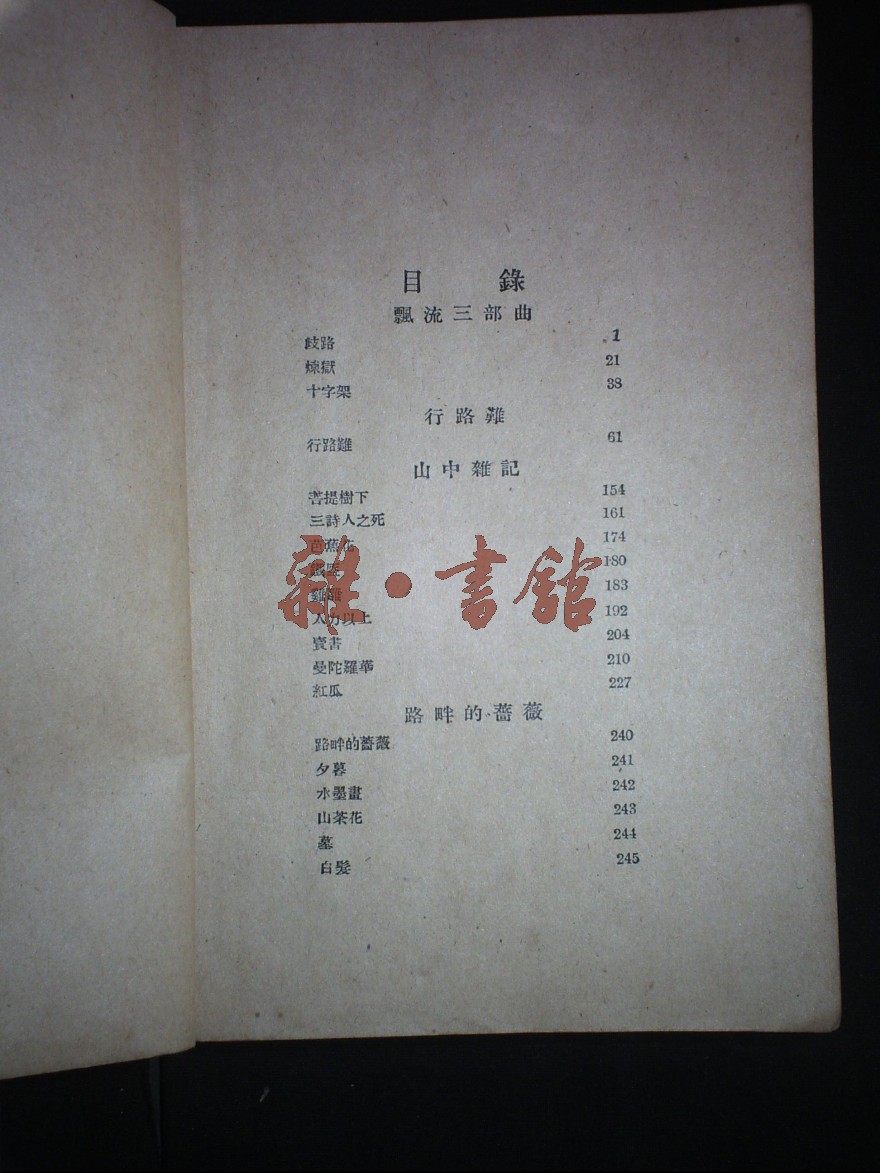 目錄
飄流三部曲
歧路 1
煉獄 21
十字架 38
行路難
行路難 61
山中雜記
菩提樹下 154
三詩人之死 161
芭蕉花 174
鐵盔 180
雞雛 183
人力以上 192
賣書 204
曼陀羅華 210
紅瓜 227
路畔的薔薇
路畔的薔薇 240
夕暮 241
水墨畫 242
山茶花 243
墓 244
白髮 245
雜·書館